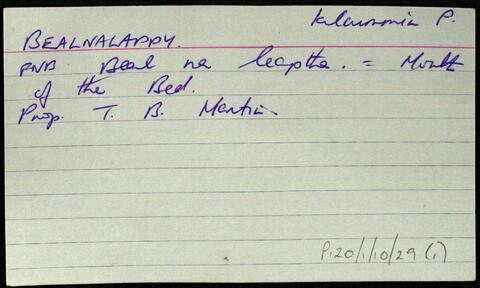 Kilcummin P.
BEALNALAPPY.
PNB Beal na leaptha. = Mouth
of the Bed.
Prop. T. B. Martin
P.20/1/10/29 (1)